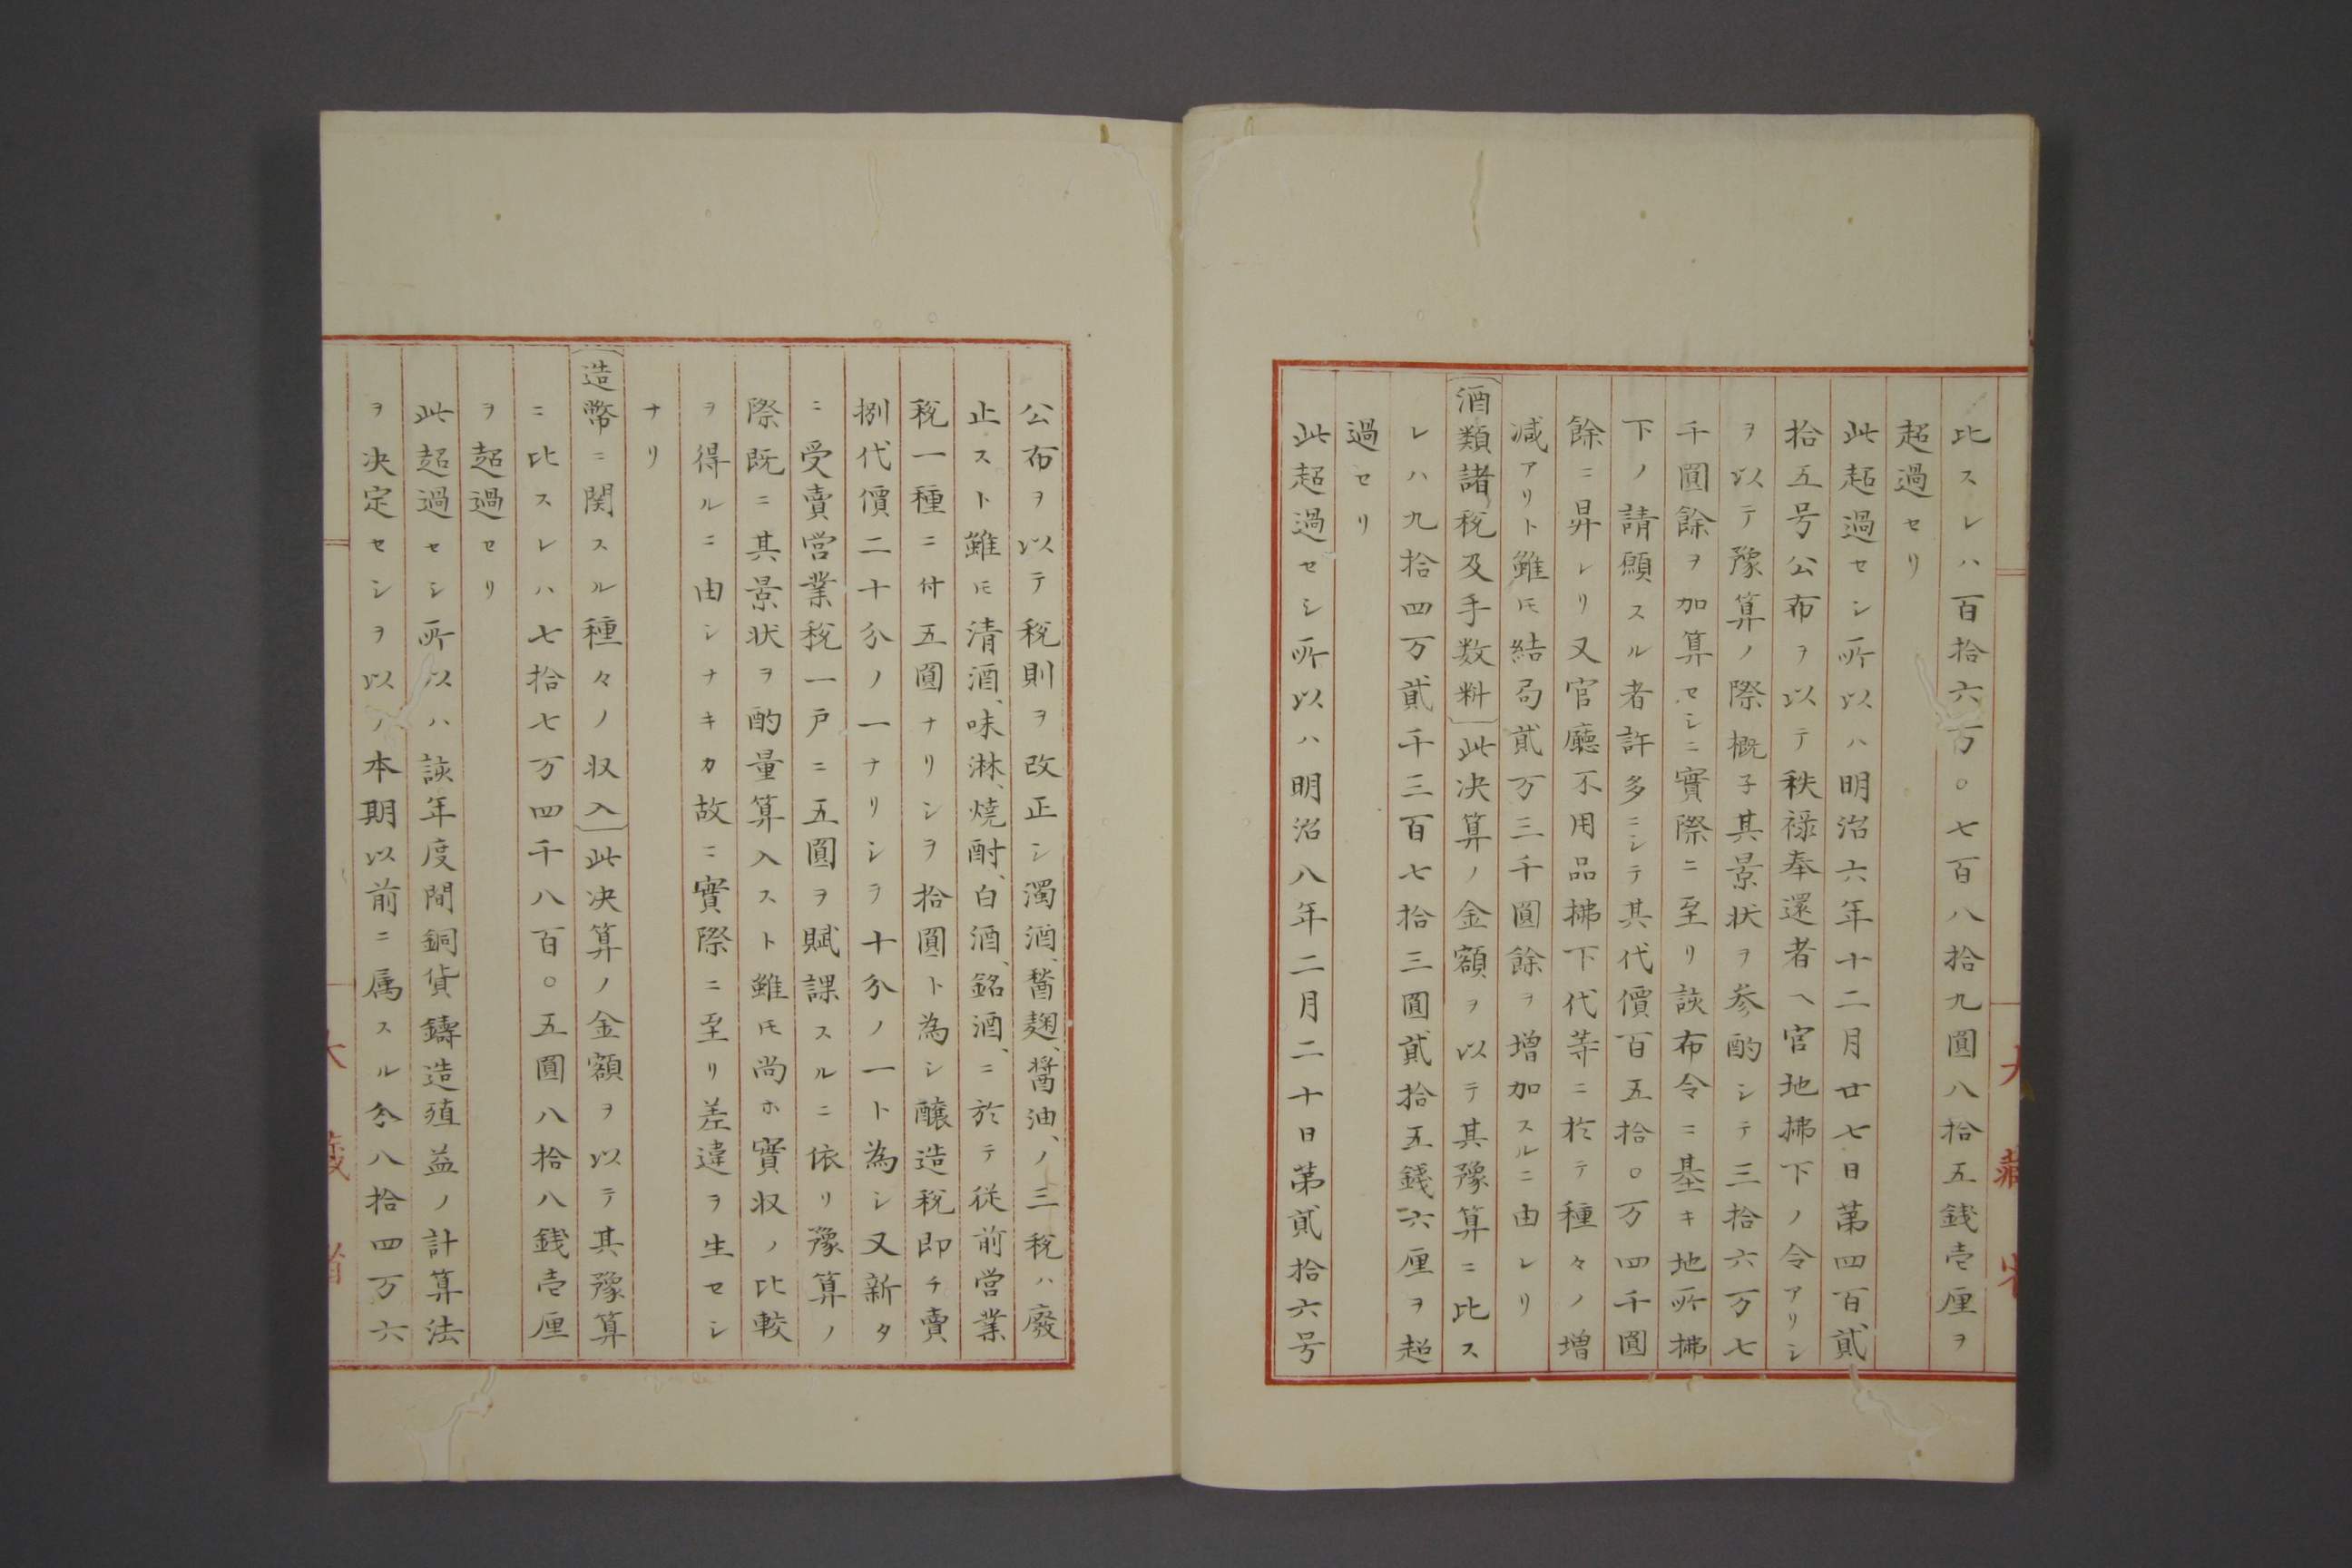 比スレハ百拾六万〇七百八拾九圓八拾五錢壱厘ヲ
超過セリ
此超過セシ所以ハ明治六年十二月廿七日第四百貳
拾五号公布ヲ以テ秩禄奉還者ヘ官地拂下ノ令アリシ
ヲ以テ豫算ノ際概子其景状ヲ参酌シテ三拾六万七
千圓餘ヲ加算セシニ實際ニ至リ該布令ニ基キ地所拂
下ノ請願スル者許多ニシテ其代價百五拾〇万四千圓
餘ニ昇レリ又官廳不用品拂下代等ニ於テ種々ノ増
減アリト雖圧結局貳万三千圓餘ヲ増加スルニ由レリ
〔酒類諸税及手数料〕此决算ノ金額ヲ以テ其豫算ニ比ス
レハ九拾四万貳千三百七拾三圓貳拾五錢六厘ヲ超
過セリ
此超過セシ所以ハ明治八年二月二十日第貳拾六号
大藏省
公布ヲ以テ税則ヲ改正シ濁酒、醤麹、醤油、ノ三税ハ廢
止スト雖圧清酒、味淋、焼酎、白酒、銘酒、ニ於テ従前営業
税一種ニ付五圓ナリシヲ拾圓ト為シ醸造税即チ賣
捌代價二十分ノ一ナリシヲ十分ノ一ト為シ又新タ
ニ受賣営業税一戸ニ五圓ヲ賦課スルニ依リ豫算ノ
際既ニ其景状ヲ酌量算入スト雖圧尚ホ實収ノ比較
ヲ得ルニ由シナキカ故ニ實際ニ至リ差違ヲ生セシ
ナリ
〔造幣ニ関スル種々ノ収入〕此决算ノ金額ヲ以テ其豫算
ニ比スレハ七拾七万四千八百〇五圓八拾八銭壱厘
ヲ超過セリ
此超過セシ所以ハ該年度間銅貨鑄造殖益ノ計算法
ヲ决定セシヲ以ノ本期以前ニ属スル分八拾四万六
大藏省